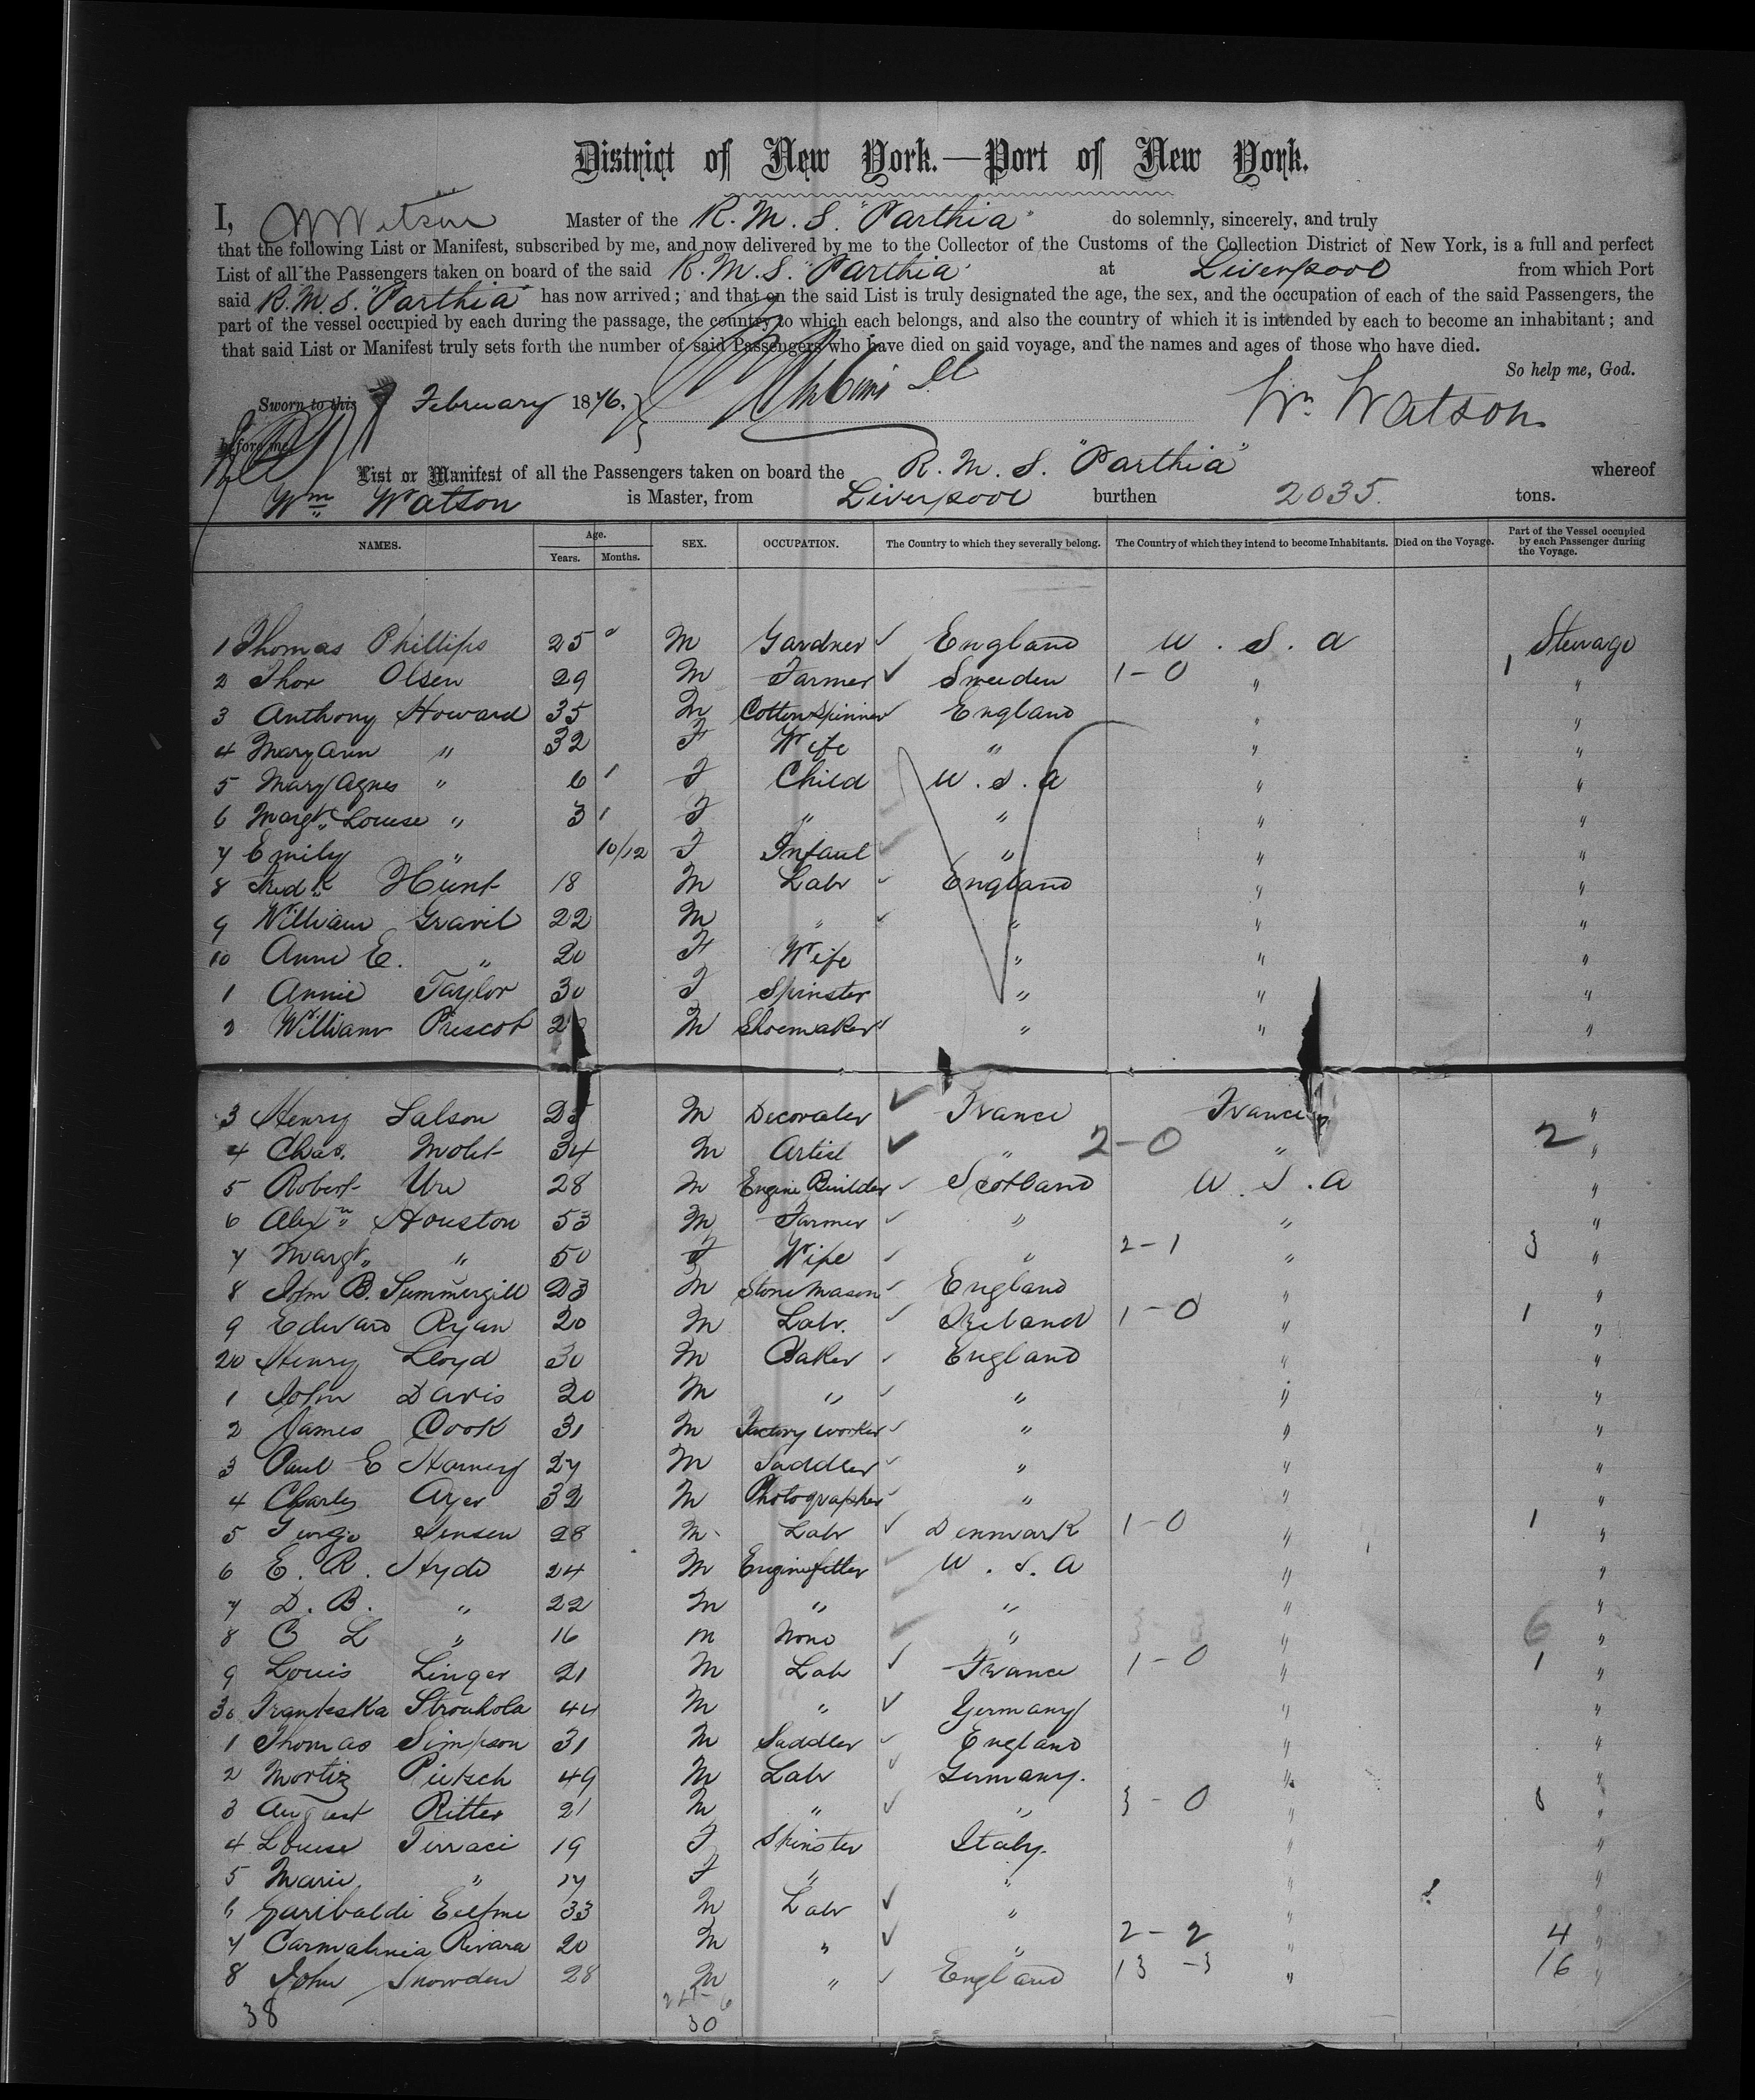 District of New York.—Port of New York.
I, W Watson Master of the R. M. S. "Parthia" do solemnly, sincerely, and truly
that the following List or Manifest, subscribed by me, and now delivered by me to the Collector of the Customs of the Collection District of New York, is a full and perfect
List of all the Passengers taken on board of the said R. M. S. "Parthia" at Liverpool from which Port
said R. M. S. "Parthia" has now arrived; and that on the said List is truly designated the age, the sex, and the occupation of each of the said Passengers, the
part of the vessel occupied by each during the passage, the country to which each belongs, and also the country of which it is intended by each to become an inhabitant; and
that said List or Manifest truly sets forth the number of said Passengers who have died on said voyage, and the names and ages of those who have died.
So help me, God.
Sworn to this 7 February 1876. Wm Watson
before me
List or Manifest of all the Passengers taken on board the R. M. S. "Parthia" whereof
Wm Watson is Master, from Liverpool burthen 2035. tons.
NAMES. Age. Years. Months. SEX. OCCUPATION. The Country to which they severally belong. The Country of which they intend to become Inhabitants. Died on the Voyage. Part of the Vessel occupied by each Passenger during the Voyage.
1 Thomas Phillips 25 M Gardner England U. S. A Sterage
2 Thor Olsen 29 M Farmer Sweeden 1-0 " 1 "
3 Anthony Howard 35 M Cotton Spinner England " "
4 Mary Ann " 32 F Wife " " "
5 Mary Agnes " 6 F Child U. S. A " "
6 Margt. Louise " 3 F " " " "
7 Emily " 10/12 F Infant " " "
8 Fredk Hunt 18 M Labr England " "
9 William Gravil 22 M " " " "
10 Anne E. " 20 F Wife " " "
1 Annie Taylor 30 F Spinster " " "
2 William Prescot M Shoemaker " " "
3 Henry Salson M Decorater France France "
4 Chas. Molet 34 M Artist " 2-0 " 2 "
5 Robert Ure 28 M Engine Builder Scotland U. S. A "
6 Alexr Houston 53 M Farmer " " "
7 Margt. " 50 F Wife " 2-1 " 3 "
8 John B. Summergill 23 M Stone Mason England " "
9 Edward Ryan 20 M Labr. Ireland 1-0 " 1 "
20 Henry Lloyd 30 M Baker England " "
1 John Davis 20 M " " " "
2 James Cook 31 M Factory Worker " " "
3 Paul E Harney 27 M Saddler " " "
4 Charles Ayer 32 M Photographer " " "
5 George Jensen 28 M Labr Denmark 1-0 " 1 "
6 E. R. Hyde 24 M Enginefitter U. S. A " "
7 D. B. " 22 M " " " "
8 C L " 16 M None " 3-3 " 6 "
9 Louis Linger 21 M Lab France 1-0 " 1 "
30 Franteska Stronhola 44 M " Germany " "
1 Thomas Simpson 31 M Saddler England " "
2 Mortiz Pietsch 49 M Labr Germany. " "
3 August Ritter 21 M " " 3-0 " 3 "
4 Louise Ferraci 19 F Spinster Italy. " "
5 Marie. " 17 F " " " "
6 Garibaldi 33 M Labr " " "
7 Carmalinia Rivara 20 M " " 2-2 " 4 "
8 John Snowden 28 M " England 13-3 " 16 "
38 30